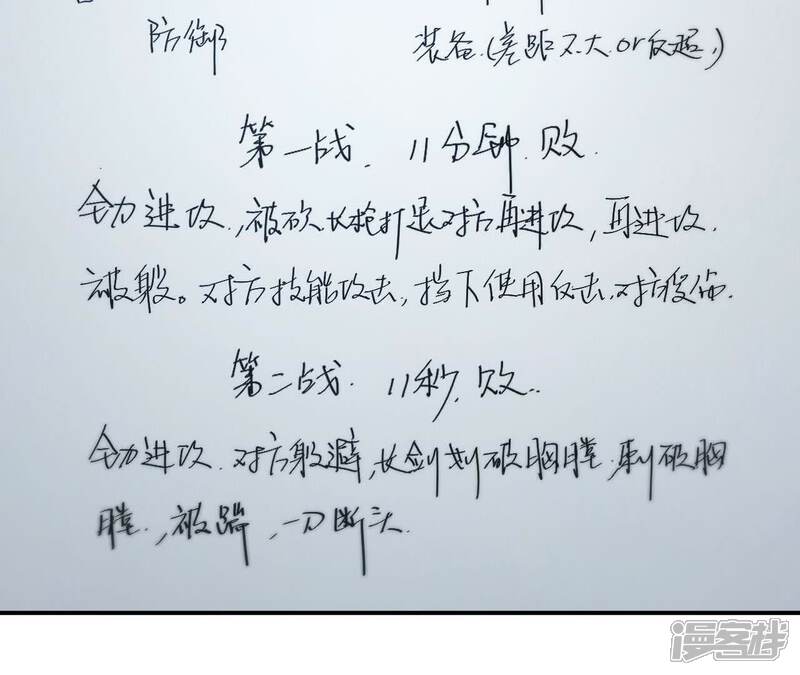 防御 装备.(差距不大.or反超,)
第一战. 11分钟.败.
全力进攻.,被砍长枪打退对方再进攻,再进攻.
被躲。对方技能攻击,挡下使用反击,对方没伤.
第二战. 11秒,败..
全力进攻.对方躲避,长剑划破胸膛.刺破胸
膛.,被踹,一刀断头.
漫客栈